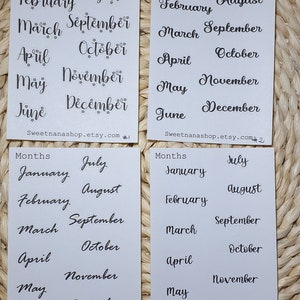 February
March September
April October
May November
June December
Sweetnanashop.etsy.com #1
February August
March September
April October
May November
June December
Sweetnanashop.etsy.com #2
Months
January July
February August
March September
April October
May November
December
Months
January July
February August
March September
April October
May November